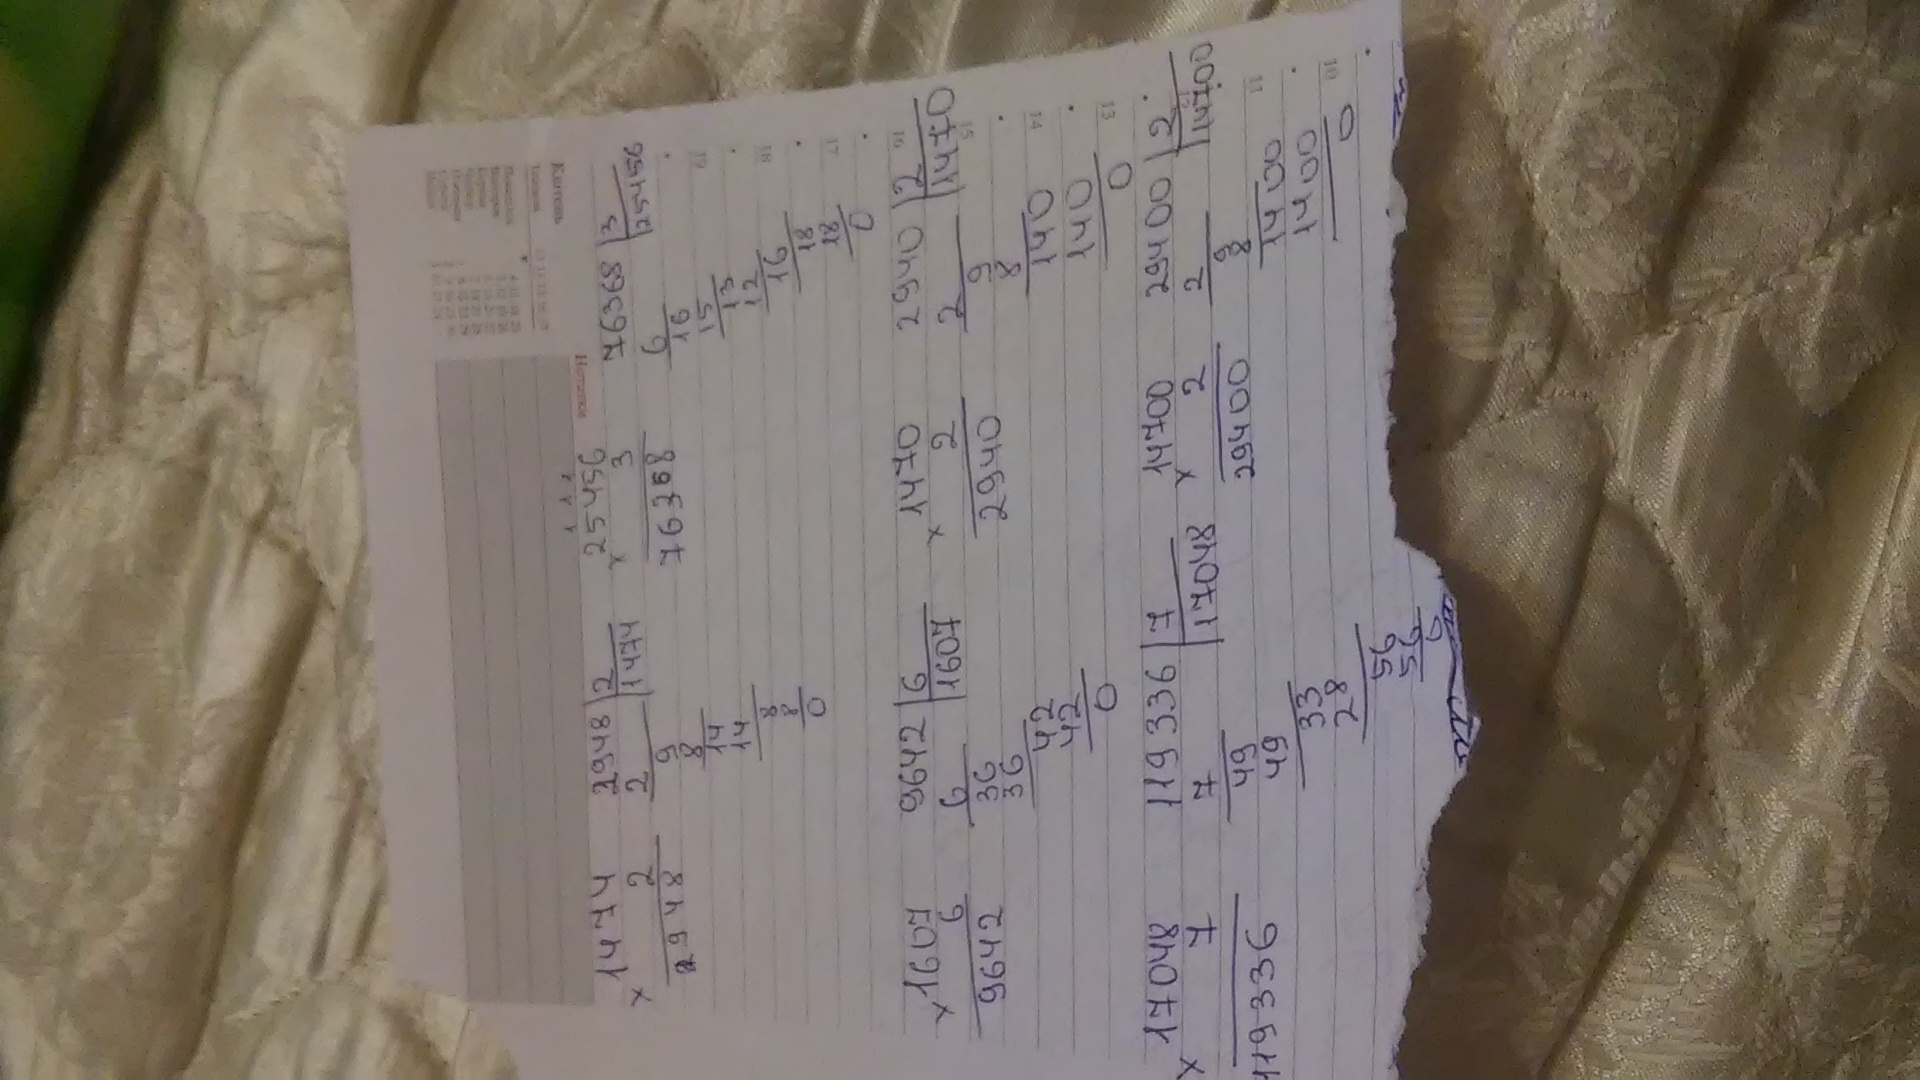 Нотатки
× 1474 2948 | 2 × 25456 76368 | 3
2 2 1474 3 6 25456
2948 9 76368 16
8 15
14 13
14 12
8 16
8 18
0 18
0
× 1607 9642 | 6 × 1470 2940 | 2
6 6 1607 2 2 1470
9642 36 2940 9
36 8
42 140
42 140
0 0
× 17048 119336 | 7 × 14700 29400 | 2
7 7 17048 2 2 14700
119336 49 29400 9
49 8
33 1400
28 1400
56 0
56
0
19
18
17
16
15
14
13
11
10